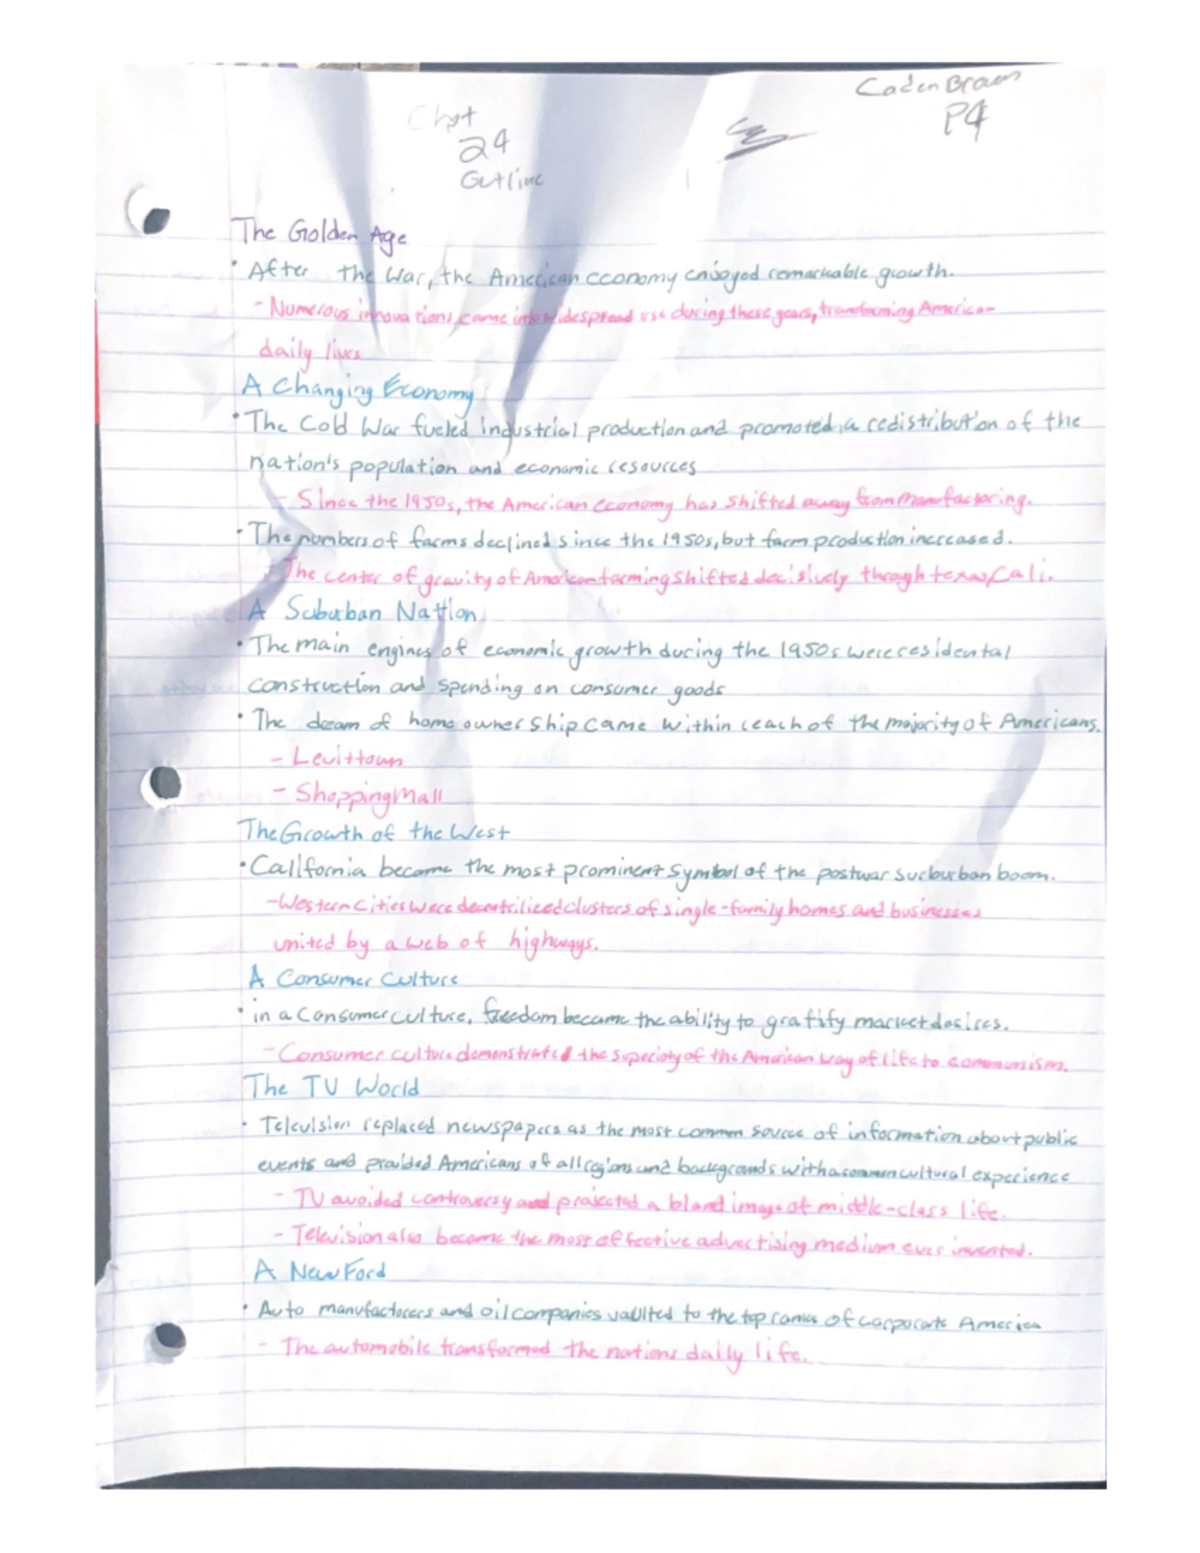 Caden Brown
P4
Chpt
24
Outline
The Golden Age
• After the War, the American economy enjoyed remarkable growth.
- Numerous innovations came into widespread use during these years, transforming American
daily lives
A Changing Economy
• The Cold War fueled industrial production and promoted a redistribution of the
nation's population and economic resources
- Since the 1950s, the American economy has shifted away from manufactoring.
• The numbers of farms declined since the 1950s, but farm production increased.
- The center of gravity of American farming shifted decisively through texas, Cali.
A Suburban Nation
• The main engines of economic growth during the 1950s were residental
construction and spending on consumer goods
• The dream of home ownership came within reach of the majority of Americans.
- Levittown
- Shopping Mall
The Growth of the West
• California became the most prominent symbol of the postwar suburban boom.
- Western Cities were decentrilized clusters of single-family homes and businesses
united by a web of highways.
A Consumer Culture
• in a Consumer culture, freedom became the ability to gratify market desires.
- Consumer culture demonstrated the superioty of the American way of life to communism.
The TV World
• Television replaced newspapers as the most common source of information about public
events and provided Americans of all regions and backgrounds with a common cultural experience
- TV avoided controversy and projected a bland image of middle-class life.
- Television also became the most effective advertising medium ever invented.
A New Ford
• Auto manufactorers and oil companies vaulted to the top ranks of corporate America
- The automobile transformed the nations daily life.